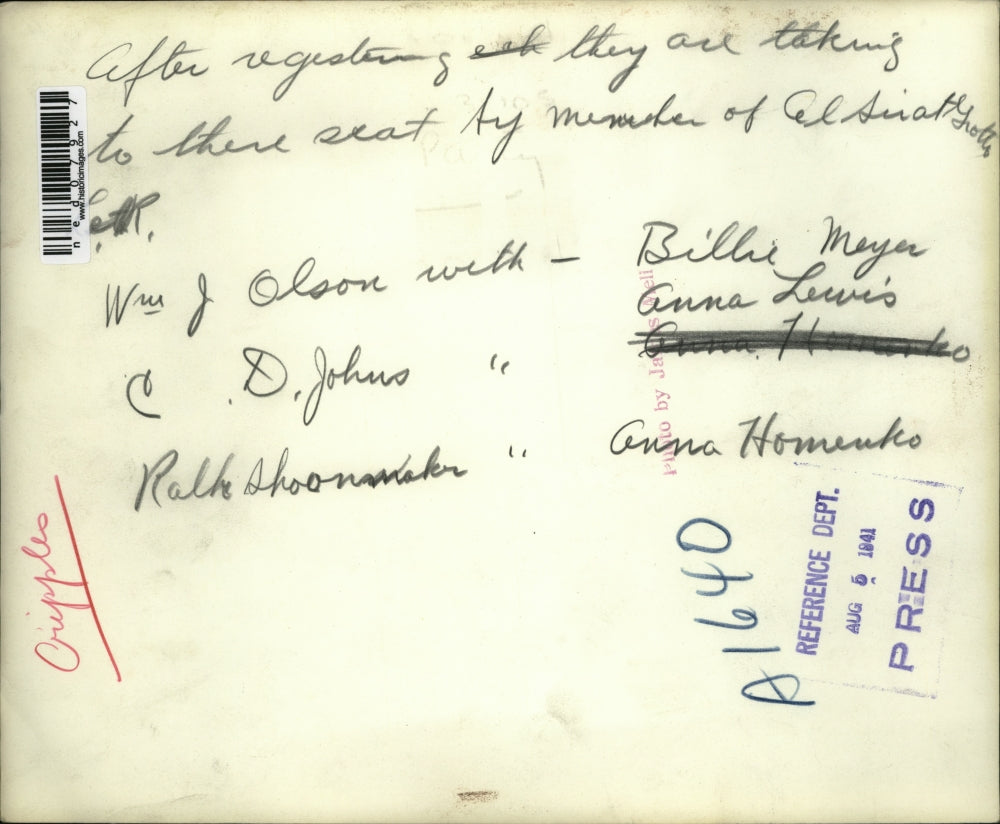 After regestering each they are taking
to there seat by member of Al Sirat Grotto
L to R.
Wm J Olson with - Billie Meyer
Anna Lewis
C. D. Johns " Anna Homenko
Ralh Shoonmaker " Anna Homenko
Cripples
A1640
REFERENCE DEPT.
AUG 5 1941
PRESS
Photo by James Meli
www.historicimages.com
ned07927